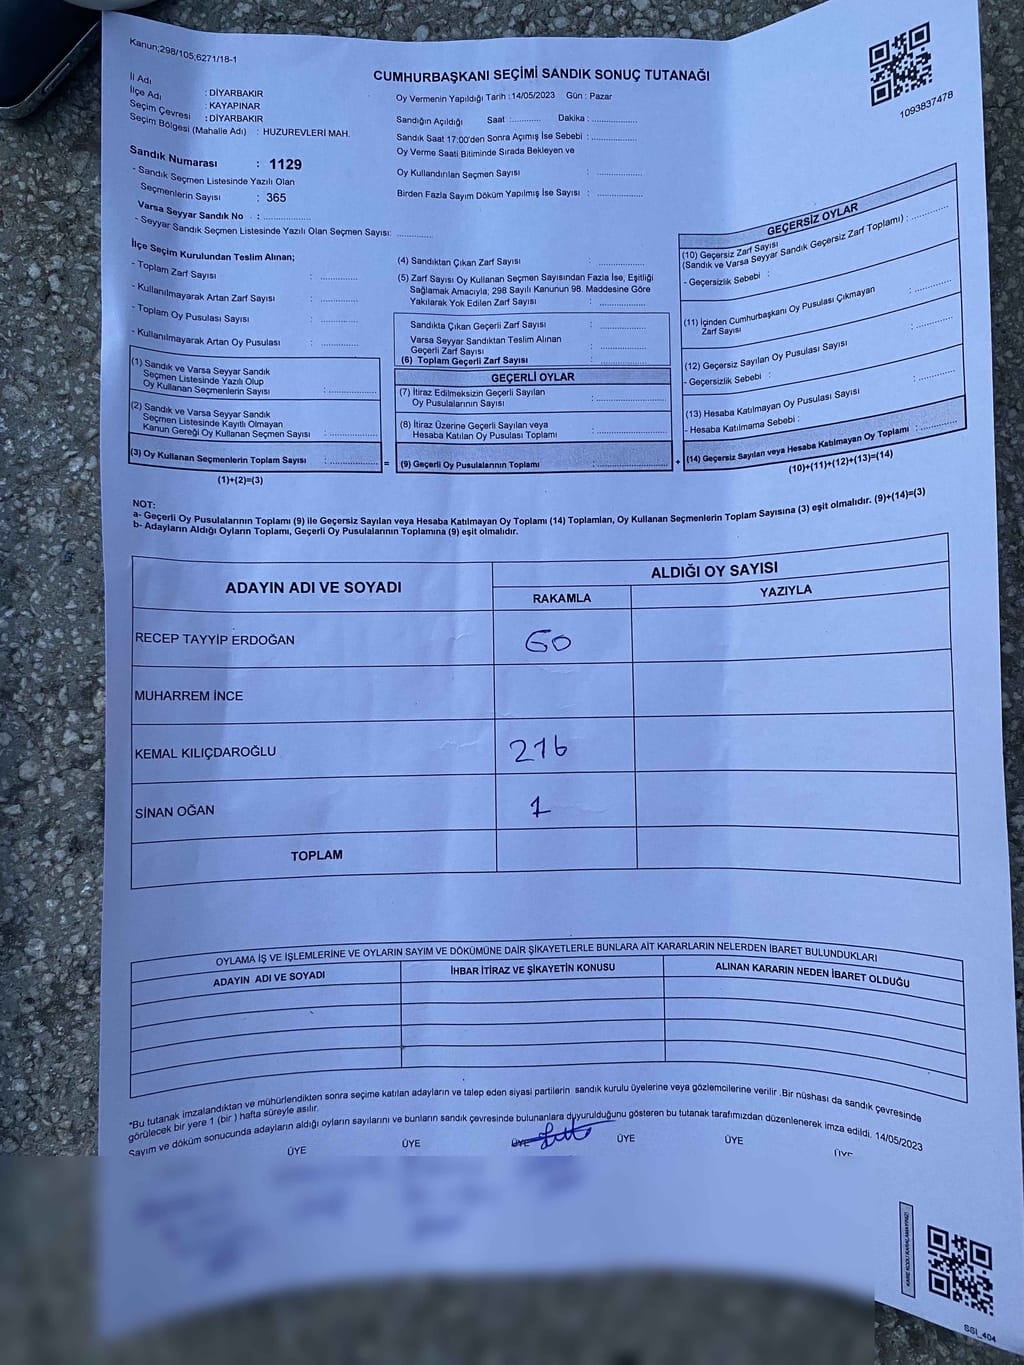 Kanun;298/105;6271/18-1
CUMHURBAŞKANI SEÇİMİ SANDIK SONUÇ TUTANAĞI
1093837478
İl Adı : DİYARBAKIR
İlçe Adı : KAYAPINAR
Seçim Çevresi : DİYARBAKIR
Seçim Bölgesi (Mahalle Adı) : HUZUREVLERİ MAH.
Sandık Numarası : 1129
- Sandık Seçmen Listesinde Yazılı Olan
Seçmenlerin Sayısı : 365
Varsa Seyyar Sandık No : ..............
- Seyyar Sandık Seçmen Listesinde Yazılı Olan Seçmen Sayısı: ..............
Oy Vermenin Yapıldığı Tarih : 14/05/2023 Gün : Pazar
Sandığın Açıldığı Saat :........... Dakika : ..............
Sandık Saat 17:00'den Sonra Açımış İse Sebebi : ..............
Oy Verme Saati Bitiminde Sırada Bekleyen ve
Oy Kullandırılan Seçmen Sayısı : ..............
Birden Fazla Sayım Döküm Yapılmış İse Sayısı : ..............
İlçe Seçim Kurulundan Teslim Alınan;
- Toplam Zarf Sayısı : ..............
- Kullanılmayarak Artan Zarf Sayısı : ..............
- Toplam Oy Pusulası Sayısı : ..............
- Kullanılmayarak Artan Oy Pusulası : ..............
(1) Sandık ve Varsa Seyyar Sandık
Seçmen Listesinde Yazılı Olup
Oy Kullanan Seçmenlerin Sayısı : ..............
(2) Sandık ve Varsa Seyyar Sandık
Seçmen Listesinde Kayıtlı Olmayan
Kanun Gereği Oy Kullanan Seçmen Sayısı : ..............
(3) Oy Kullanan Seçmenlerin Toplam Sayısı : .............. =
(1)+(2)=(3)
(4) Sandıktan Çıkan Zarf Sayısı : ..............
(5) Zarf Sayısı Oy Kullanan Seçmen Sayısından Fazla İse, Eşitliği
Sağlamak Amacıyla; 298 Sayılı Kanunun 98. Maddesine Göre
Yakılarak Yok Edilen Zarf Sayısı : ..............
Sandıkta Çıkan Geçerli Zarf Sayısı : ..............
Varsa Seyyar Sandıktan Teslim Alınan
Geçerli Zarf Sayısı : ..............
(6) Toplam Geçerli Zarf Sayısı : ..............
GEÇERLİ OYLAR
(7) İtiraz Edilmeksizin Geçerli Sayılan
Oy Pusulalarının Sayısı : ..............
(8) İtiraz Üzerine Geçerli Sayılan veya
Hesaba Katılan Oy Pusulası Toplamı : ..............
(9) Geçerli Oy Pusulalarının Toplamı : .............. +
GEÇERSİZ OYLAR
(10) Geçersiz Zarf Sayısı
(Sandık ve Varsa Seyyar Sandık Geçersiz Zarf Toplamı) : ..............
- Geçersizlik Sebebi :
(11) İçinden Cumhurbaşkanı Oy Pusulası Çıkmayan
Zarf Sayısı : ..............
(12) Geçersiz Sayılan Oy Pusulası Sayısı : ..............
- Geçersizlik Sebebi :
(13) Hesaba Katılmayan Oy Pusulası Sayısı : ..............
- Hesaba Katılmama Sebebi :
(14) Geçersiz Sayılan veya Hesaba Katılmayan Oy Toplamı : ..............
(10)+(11)+(12)+(13)=(14)
NOT:
a- Geçerli Oy Pusulalarının Toplamı (9) ile Geçersiz Sayılan veya Hesaba Katılmayan Oy Toplamı (14) Toplamları, Oy Kullanan Seçmenlerin Toplam Sayısına (3) eşit olmalıdır. (9)+(14)=(3)
b- Adayların Aldığı Oyların Toplamı, Geçerli Oy Pusulalarının Toplamına (9) eşit olmalıdır.
ADAYIN ADI VE SOYADI
ALDIĞI OY SAYISI
RAKAMLA YAZIYLA
RECEP TAYYİP ERDOĞAN 60
MUHARREM İNCE
KEMAL KILIÇDAROĞLU 216
SİNAN OĞAN 1
TOPLAM
OYLAMA İŞ VE İŞLEMLERİNE VE OYLARIN SAYIM VE DÖKÜMÜNE DAİR ŞİKAYETLERLE BUNLARA AİT KARARLARIN NELERDEN İBARET BULUNDUKLARI
ADAYIN ADI VE SOYADI İHBAR İTİRAZ VE ŞİKAYETİN KONUSU ALINAN KARARIN NEDEN İBARET OLDUĞU
*Bu tutanak imzalandıktan ve mühürlendikten sonra seçime katılan adayların ve talep eden siyasi partilerin sandık kurulu üyelerine veya gözlemcilerine verilir .Bir nüshası da sandık çevresinde
görülecek bir yere 1 (bir ) hafta süreyle asılır.
Sayım ve döküm sonucunda adayların aldığı oyların sayılarını ve bunların sandık çevresinde bulunanlara duyurulduğunu gösteren bu tutanak tarafımızdan düzenlenerek imza edildi. 14/05/2023
ÜYE ÜYE ÜYE ÜYE ÜYE ÜYE
SSI_404